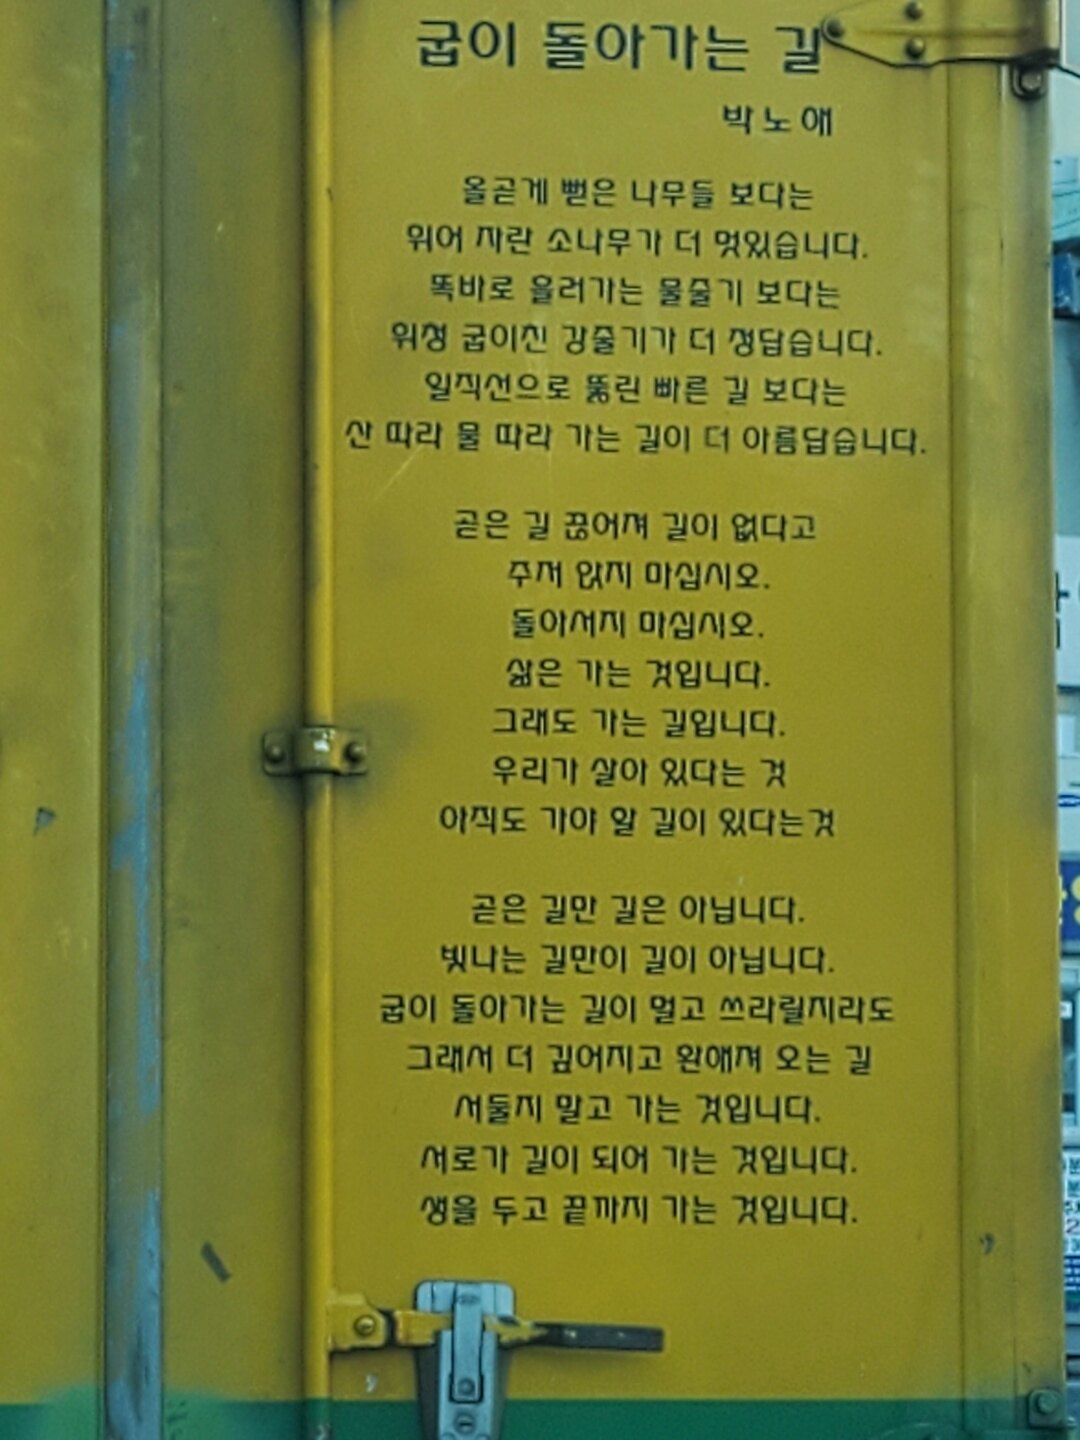 굽이 돌아가는 길
박노애
올곧게 뻗은 나무들 보다는
휘어 자란 소나무가 더 멋있습니다.
똑바로 흘러가는 물줄기 보다는
휘청 굽이친 강줄기가 더 정답습니다.
일직선으로 뚫린 빠른 길 보다는
산 따라 물 따라 가는 길이 더 아름답습니다.
곧은 길 끊어져 길이 없다고
주저 앉지 마십시오.
돌아서지 마십시오.
삶은 가는 것입니다.
그래도 가는 길입니다.
우리가 살아 있다는 것
아직도 가야 할 길이 있다는것
곧은 길만 길은 아닙니다.
빛나는 길만이 길이 아닙니다.
굽이 돌아가는 길이 멀고 쓰라릴지라도
그래서 더 깊어지고 환애져 오는 길
서둘지 말고 가는 것입니다.
서로가 길이 되어 가는 것입니다.
생을 두고 끝까지 가는 것입니다.